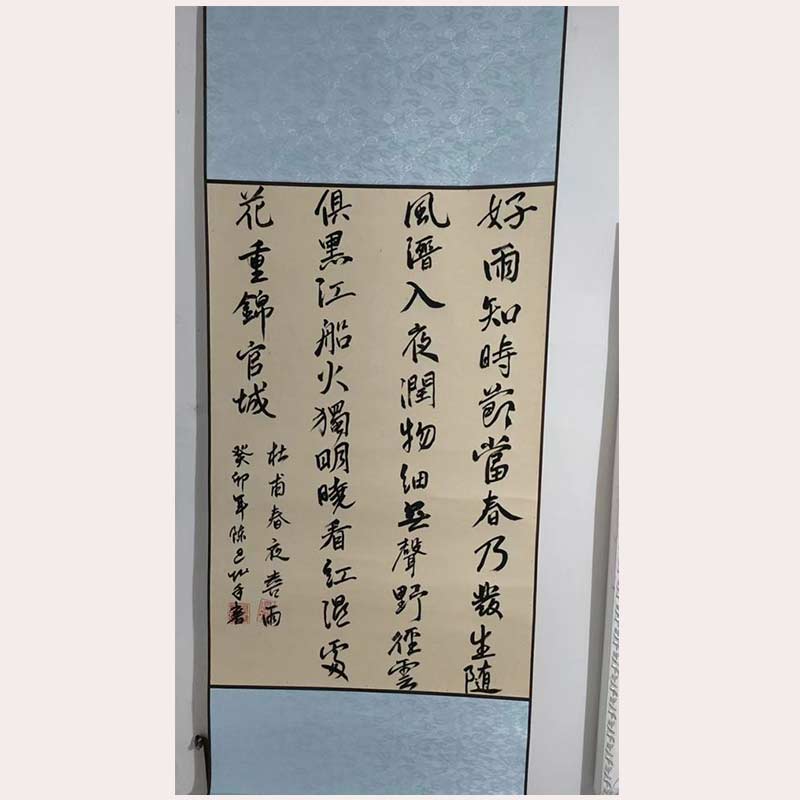 好雨知時節當春乃發生随
風潛入夜潤物細無聲野徑雲
俱黑江船火獨明曉看紅濕處
花重錦官城
杜甫春夜喜雨
癸卯年陈
书